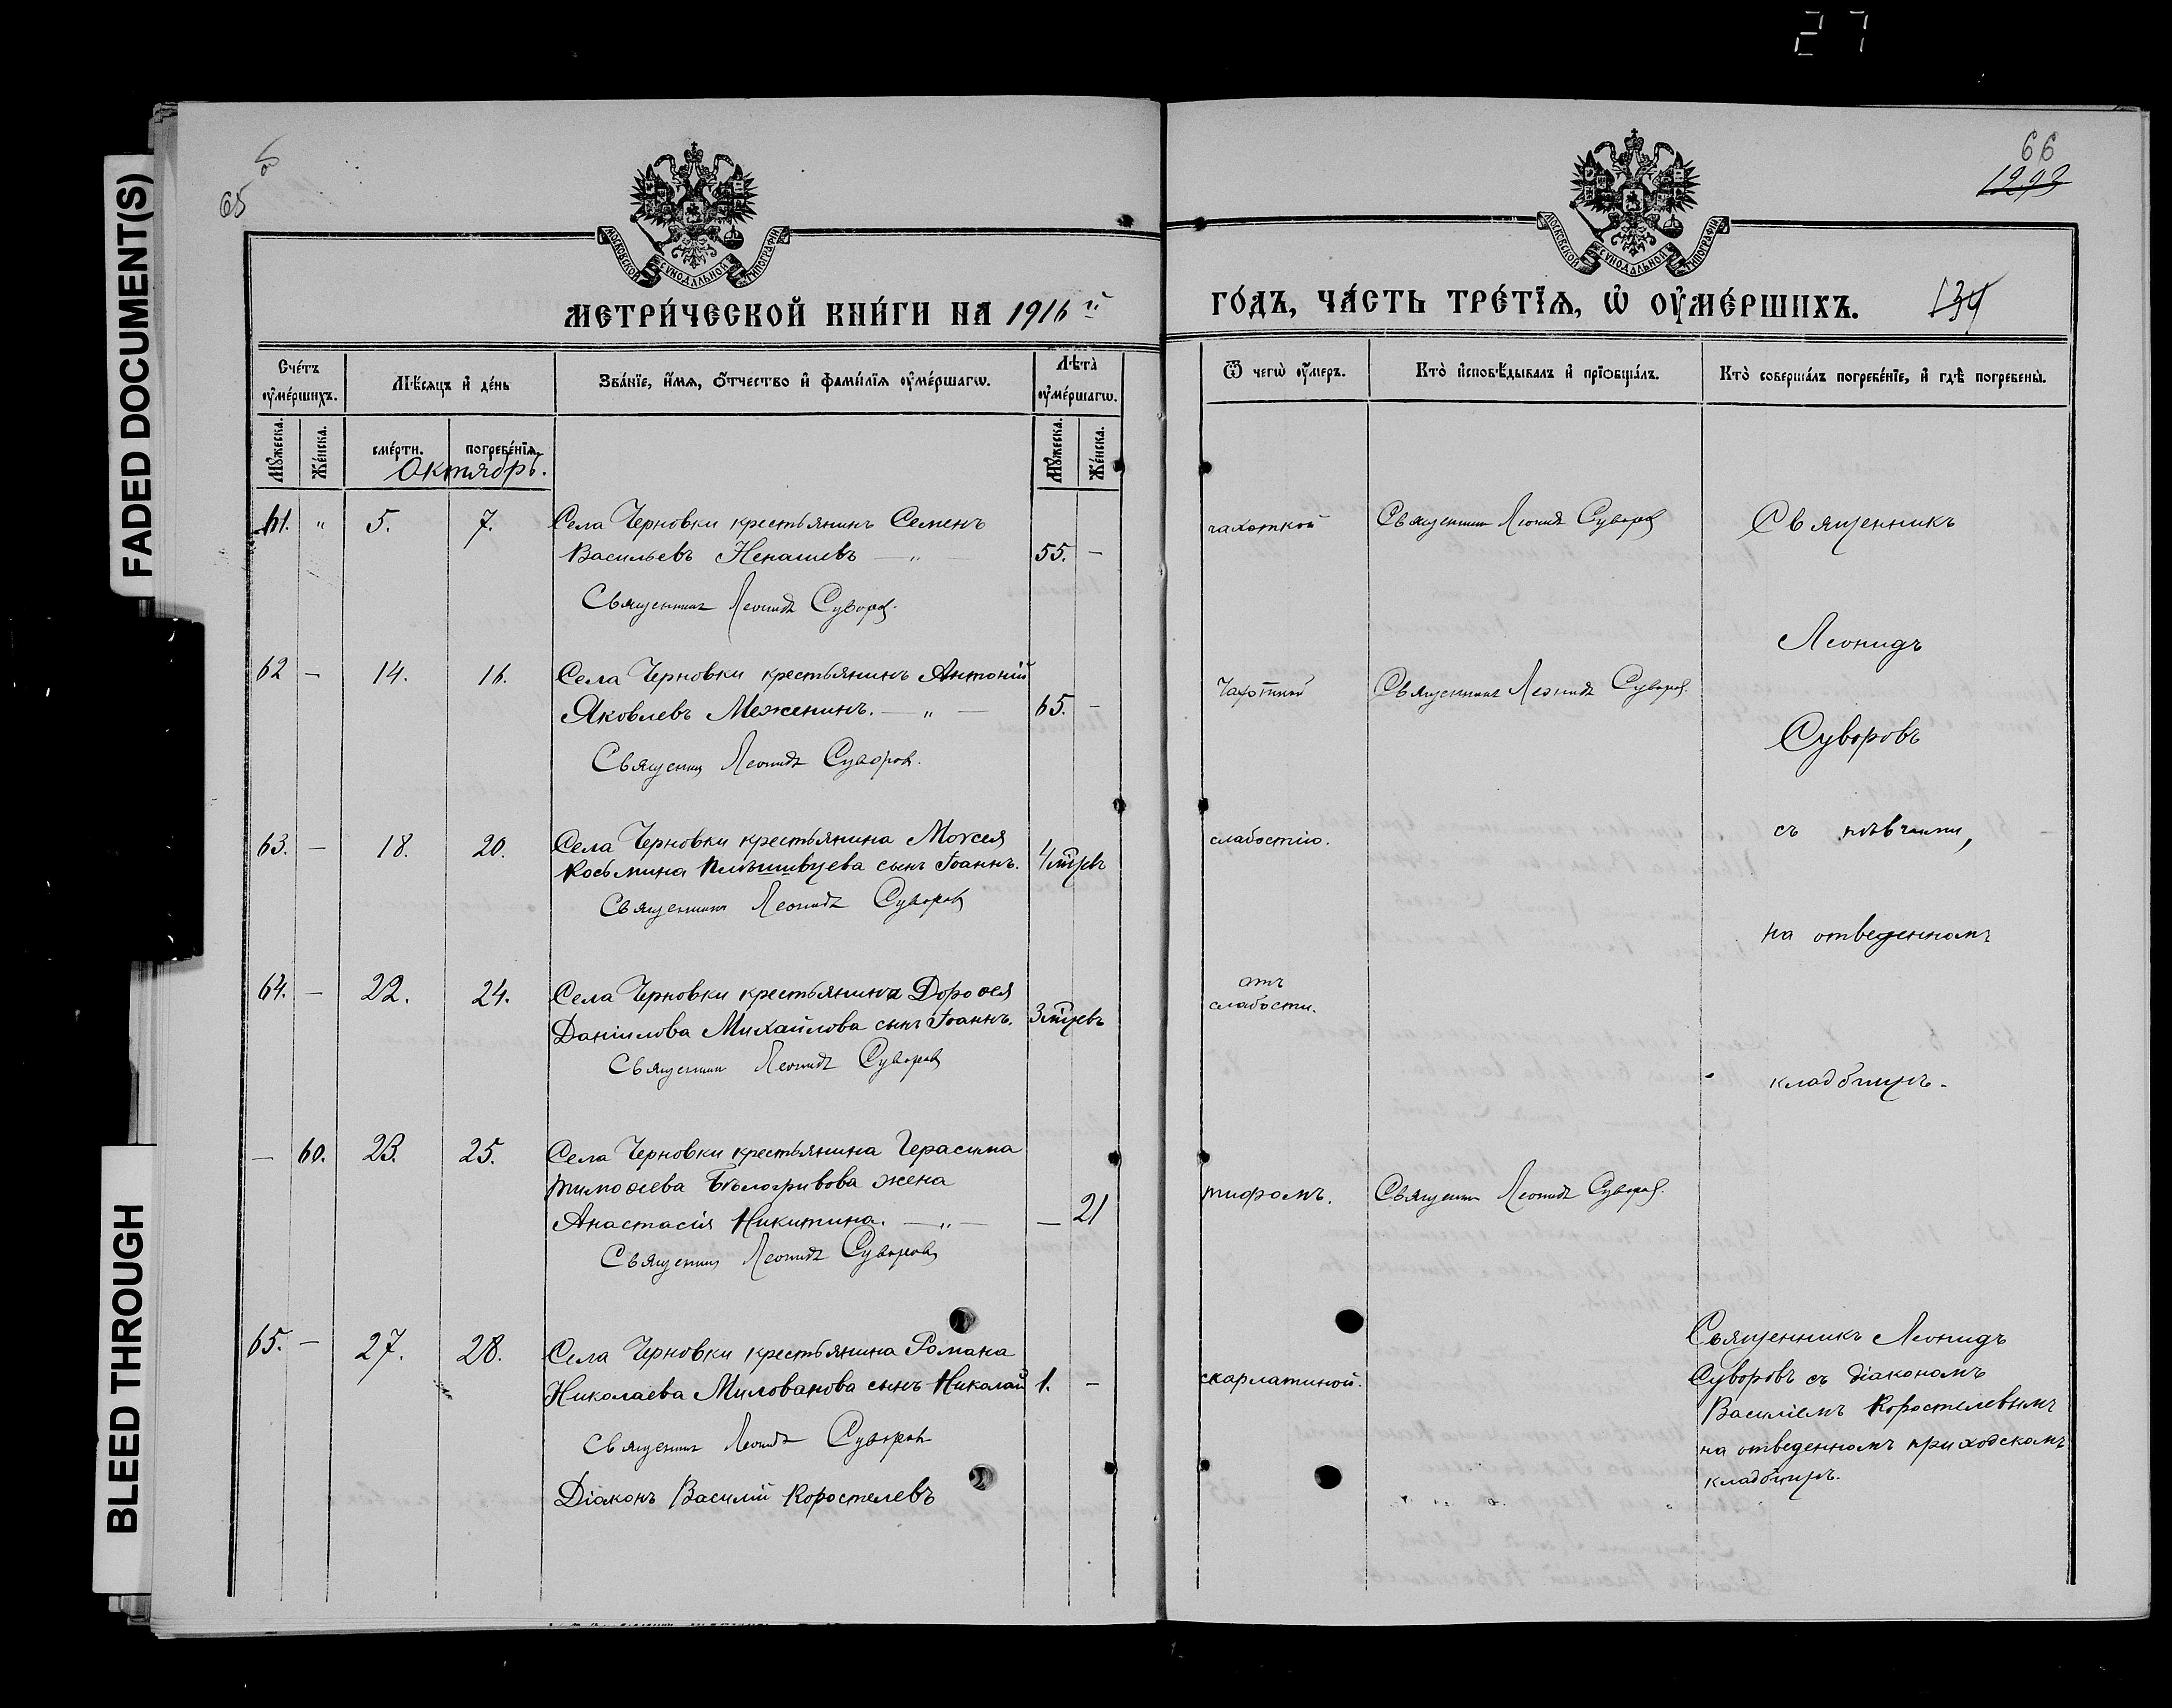 27
FADED DOCUMENT(S)
BLEED THROUGH
65 об
МОСКОВСКОЙ СѴНОДАЛЬНОЙ ТИПОГРАФІИ
МЕТРИ́ЧЕСКОЙ КНИ́ГИ НА 1916й
Сче́тъ оу҆ме́ршихъ.
Мѣ́сяцъ и҆ де́нь
Зва́нїе, и҆́мѧ, ѻ҆́тчество и҆ фамі́лїѧ оу҆ме́ршагѡ.
Лѣ́та оу҆ме́ршагѡ.
Мꙋ́жеска.
Же́нска.
сме́рти.
погребе́нїѧ.
Мꙋ́жеска.
Же́нска.
Октябрь.
61. " 5. 7. Села Черновки крестьянинъ Семенъ
Васильевъ Ненашевъ — " — 55. —
Священникъ Леонидъ Суворов
62 — 14. 16. Села Черновки крестьянинъ Антоній
Яковлевъ Меженинъ. — " — 65. —
Священник Леонидъ Суворов.
63. — 18. 20. Села Черновки крестьянина Моѵсея
Косьмина сынъ Іоаннъ. 4 мцевъ
Священникъ Леонидъ Суворов
64. — 22. 24. Села Черновки крестьянина Дороѳея
Даніилова Михайлова сынъ Іоаннъ. 3 мцевъ
Священник Леонидъ Суворов
— 60. 23. 25. Села Черновки крестьянина Герасима
Тимоѳеева Бѣлогривова жена
Анастасія Никитина. — " — — 21
Священник Леонидъ Суворов
65. — 27. 28. Села Черновки крестьянина Романа
Николаева Милованова сынъ Николай 1. —
Священник Леонидъ Суворов
Діаконъ Василій Коростелевъ
66
1293
МОСКОВСКОЙ СѴНОДАЛЬНОЙ ТИПОГРАФІИ
ГО́ДЪ, ЧА́СТЬ ТРЕ́ТЇѦ, Ѡ҆ ОУ҆МЕ́РШИХЪ. 134
Ѿ чегѡ̀ оу҆́меръ.
Кто̀ и҆сповѣ́дывалъ и҆ прїѻбща́лъ.
Кто̀ соверша́лъ погребе́нїе, и҆ гдѣ̀ погребены̀.
чахоткой Священник Леонид Суворов Священникъ
Леонидъ
Чахоткой Священник Леонидъ Суворов.
Суворовъ
слабостію. съ пѣвчими,
на отведенномъ
отъ
слабости.
кладбищѣ.
тифомъ. Священник Леонидъ Суворов.
скарлатиной. Священникъ Леонидъ
Суворовъ съ діакономъ
Василіемъ Коростелевымъ
на отведенномъ приходскомъ
кладбищѣ.